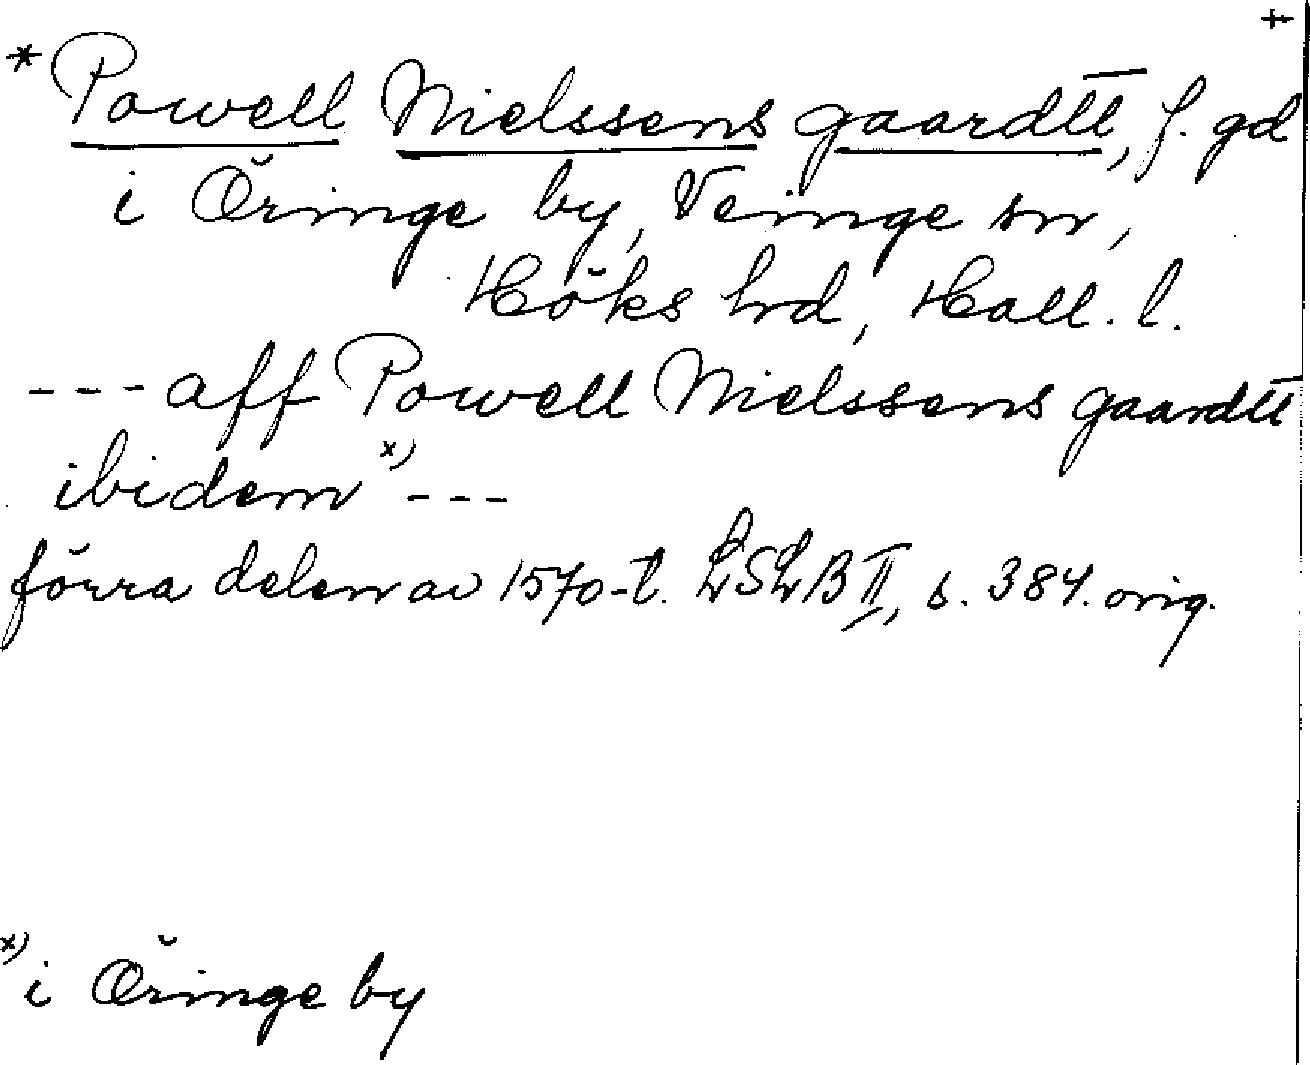 †
* Powell Nielssens gaardtt, f. gd
i Öringe by, Veinge sn,
Höks hrd, Hall. l.
--- aff Powell Nielssens gaardtt
ibidem x) ---
förra delen av 1570-t. LSLB II, s. 384. orig.
x) i Öringe by